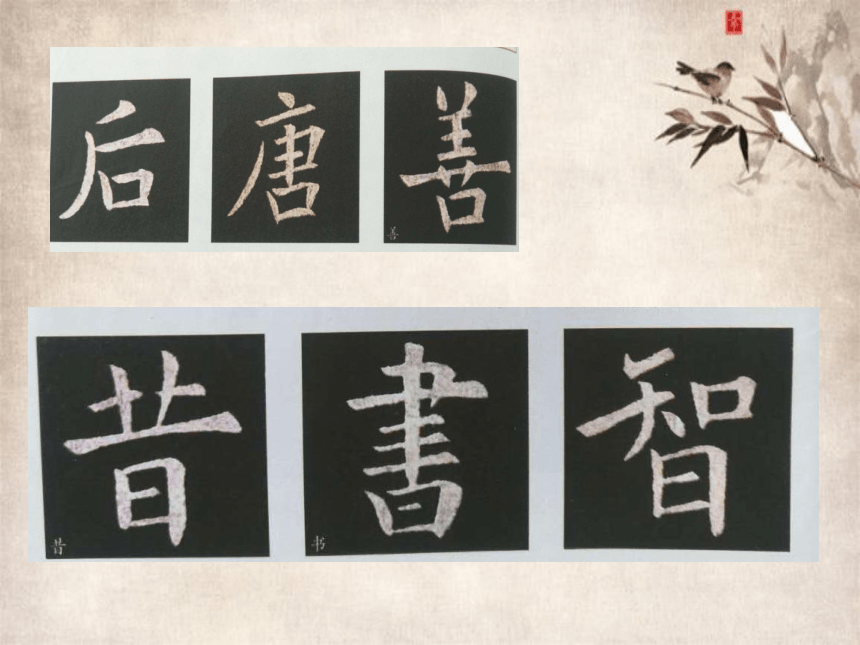 后 唐 善
善
昔 書 智
昔 书